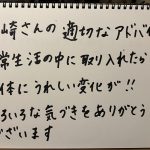 崎さんの適切なアドバイ
常生活の中に取り入れたら
体にうれしい変化が!!
ろいろな気づきをありがとう
ございます